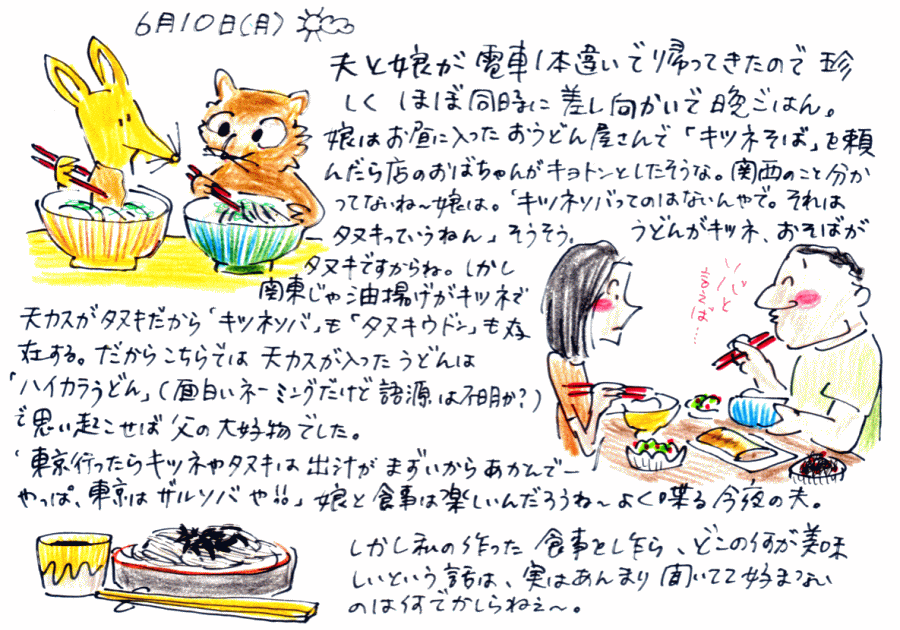 6月10日(月)
夫と娘が電車1本違いで帰ってきたので珍
しくほぼ同時に差し向かいで晩ごはん。
娘はお昼に入ったおうどん屋さんで「キツネそば」を頼
んだら店のおばちゃんがキョトンとしたそうな。関西のこと分か
ってないね〜娘は。「キツネソバってのはないんやで。それは
タヌキっていうねん」そうそう。うどんがキツネ、おそばが
タヌキですからね。しかし
関東じゃ油揚げがキツネで
天カスがタヌキだから「キツネソバ」も「タヌキウドン」も存
在する。だからこちらでは天カスが入ったうどんは
「ハイカラうどん」(面白いネーミングだけど語源は不明か?)
で思い起こせば父の大好物でした。
「東京行ったらキツネやタヌキは出汁がまずいからあかんでー
やっぱ、東京はザルソバや!!」娘と食事は楽しいんだろうね〜よく喋る今夜の夫。
ソバと
言えば…
しかし私の作った食事をしながら、どこの何が美味
しいという話は、実はあんまり聞いてて好まない
のは何でかしらねぇ〜。